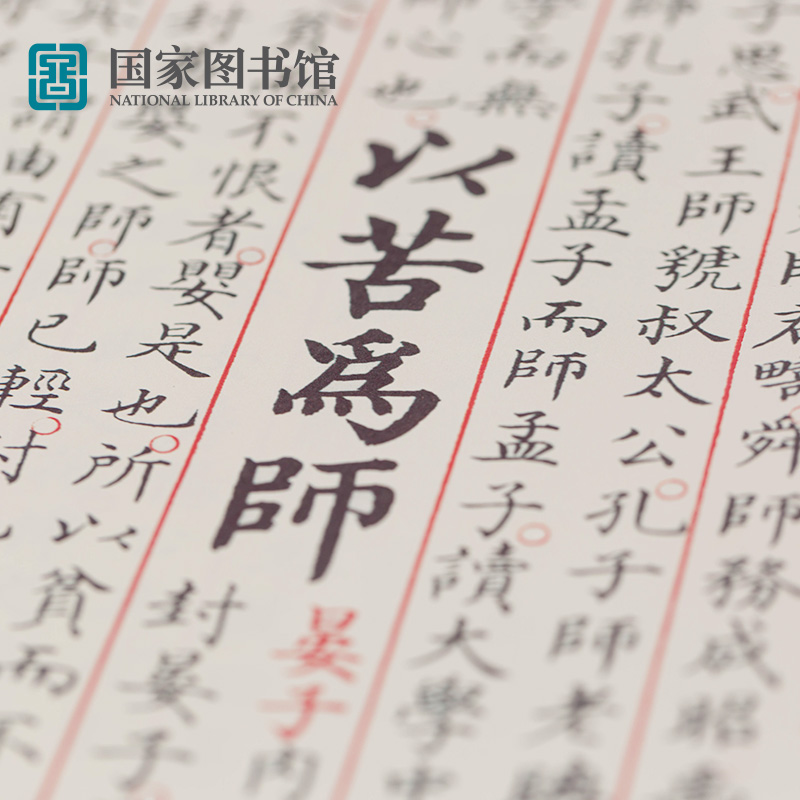 国家图书馆
NATIONAL LIBRARY OF CHINA
舜師務成昭
子思武王師虢叔太公孔子師老
師孔子讀孟子而師孟子讀大學中
學而無
師心也
以苦爲師
晏子内
封晏子
不恨者嬰是也所以貧而不
嬰之師師已輕封
由有